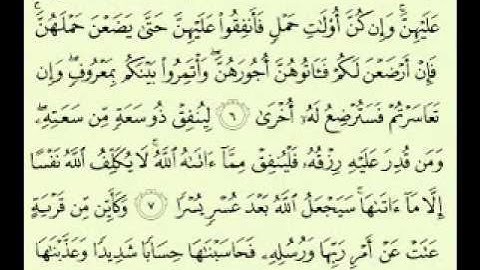 عَلَيْهِنَّ ۚ وَإِن كُنَّ أُو۟لَـٰتِ حَمْلٍ فَأَنفِقُوا۟ عَلَيْهِنَّ حَتَّىٰ يَضَعْنَ حَمْلَهُنَّ ۚ
فَإِنْ أَرْضَعْنَ لَكُمْ فَـَٔاتُوهُنَّ أُجُورَهُنَّ ۖ وَأْتَمِرُوا۟ بَيْنَكُم بِمَعْرُوفٍ ۖ وَإِن
تَعَاسَرْتُمْ فَسَتُرْضِعُ لَهُۥٓ أُخْرَىٰ ٦ لِيُنفِقْ ذُو سَعَةٍ مِّن سَعَتِهِۦ ۖ
وَمَن قُدِرَ عَلَيْهِ رِزْقُهُۥ فَلْيُنفِقْ مِمَّآ ءَاتَىٰهُ ٱللَّهُ ۚ لَا يُكَلِّفُ ٱللَّهُ نَفْسًا
إِلَّا مَآ ءَاتَىٰهَا ۚ سَيَجْعَلُ ٱللَّهُ بَعْدَ عُسْرٍ يُسْرًا ٧ وَكَأَيِّن مِّن قَرْيَةٍ
عَتَتْ عَنْ أَمْرِ رَبِّهَا وَرُسُلِهِۦ فَحَاسَبْنَـٰهَا حِسَابًا شَدِيدًا وَعَذَّبْنَـٰهَا